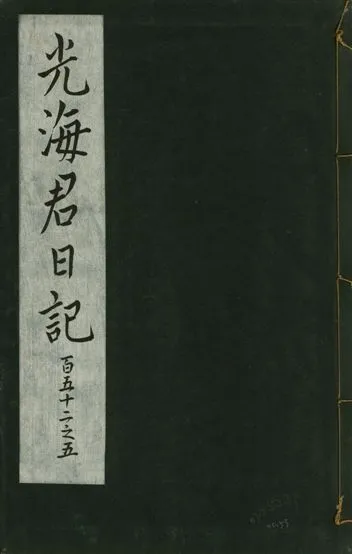 光海君日記
百五十二之五